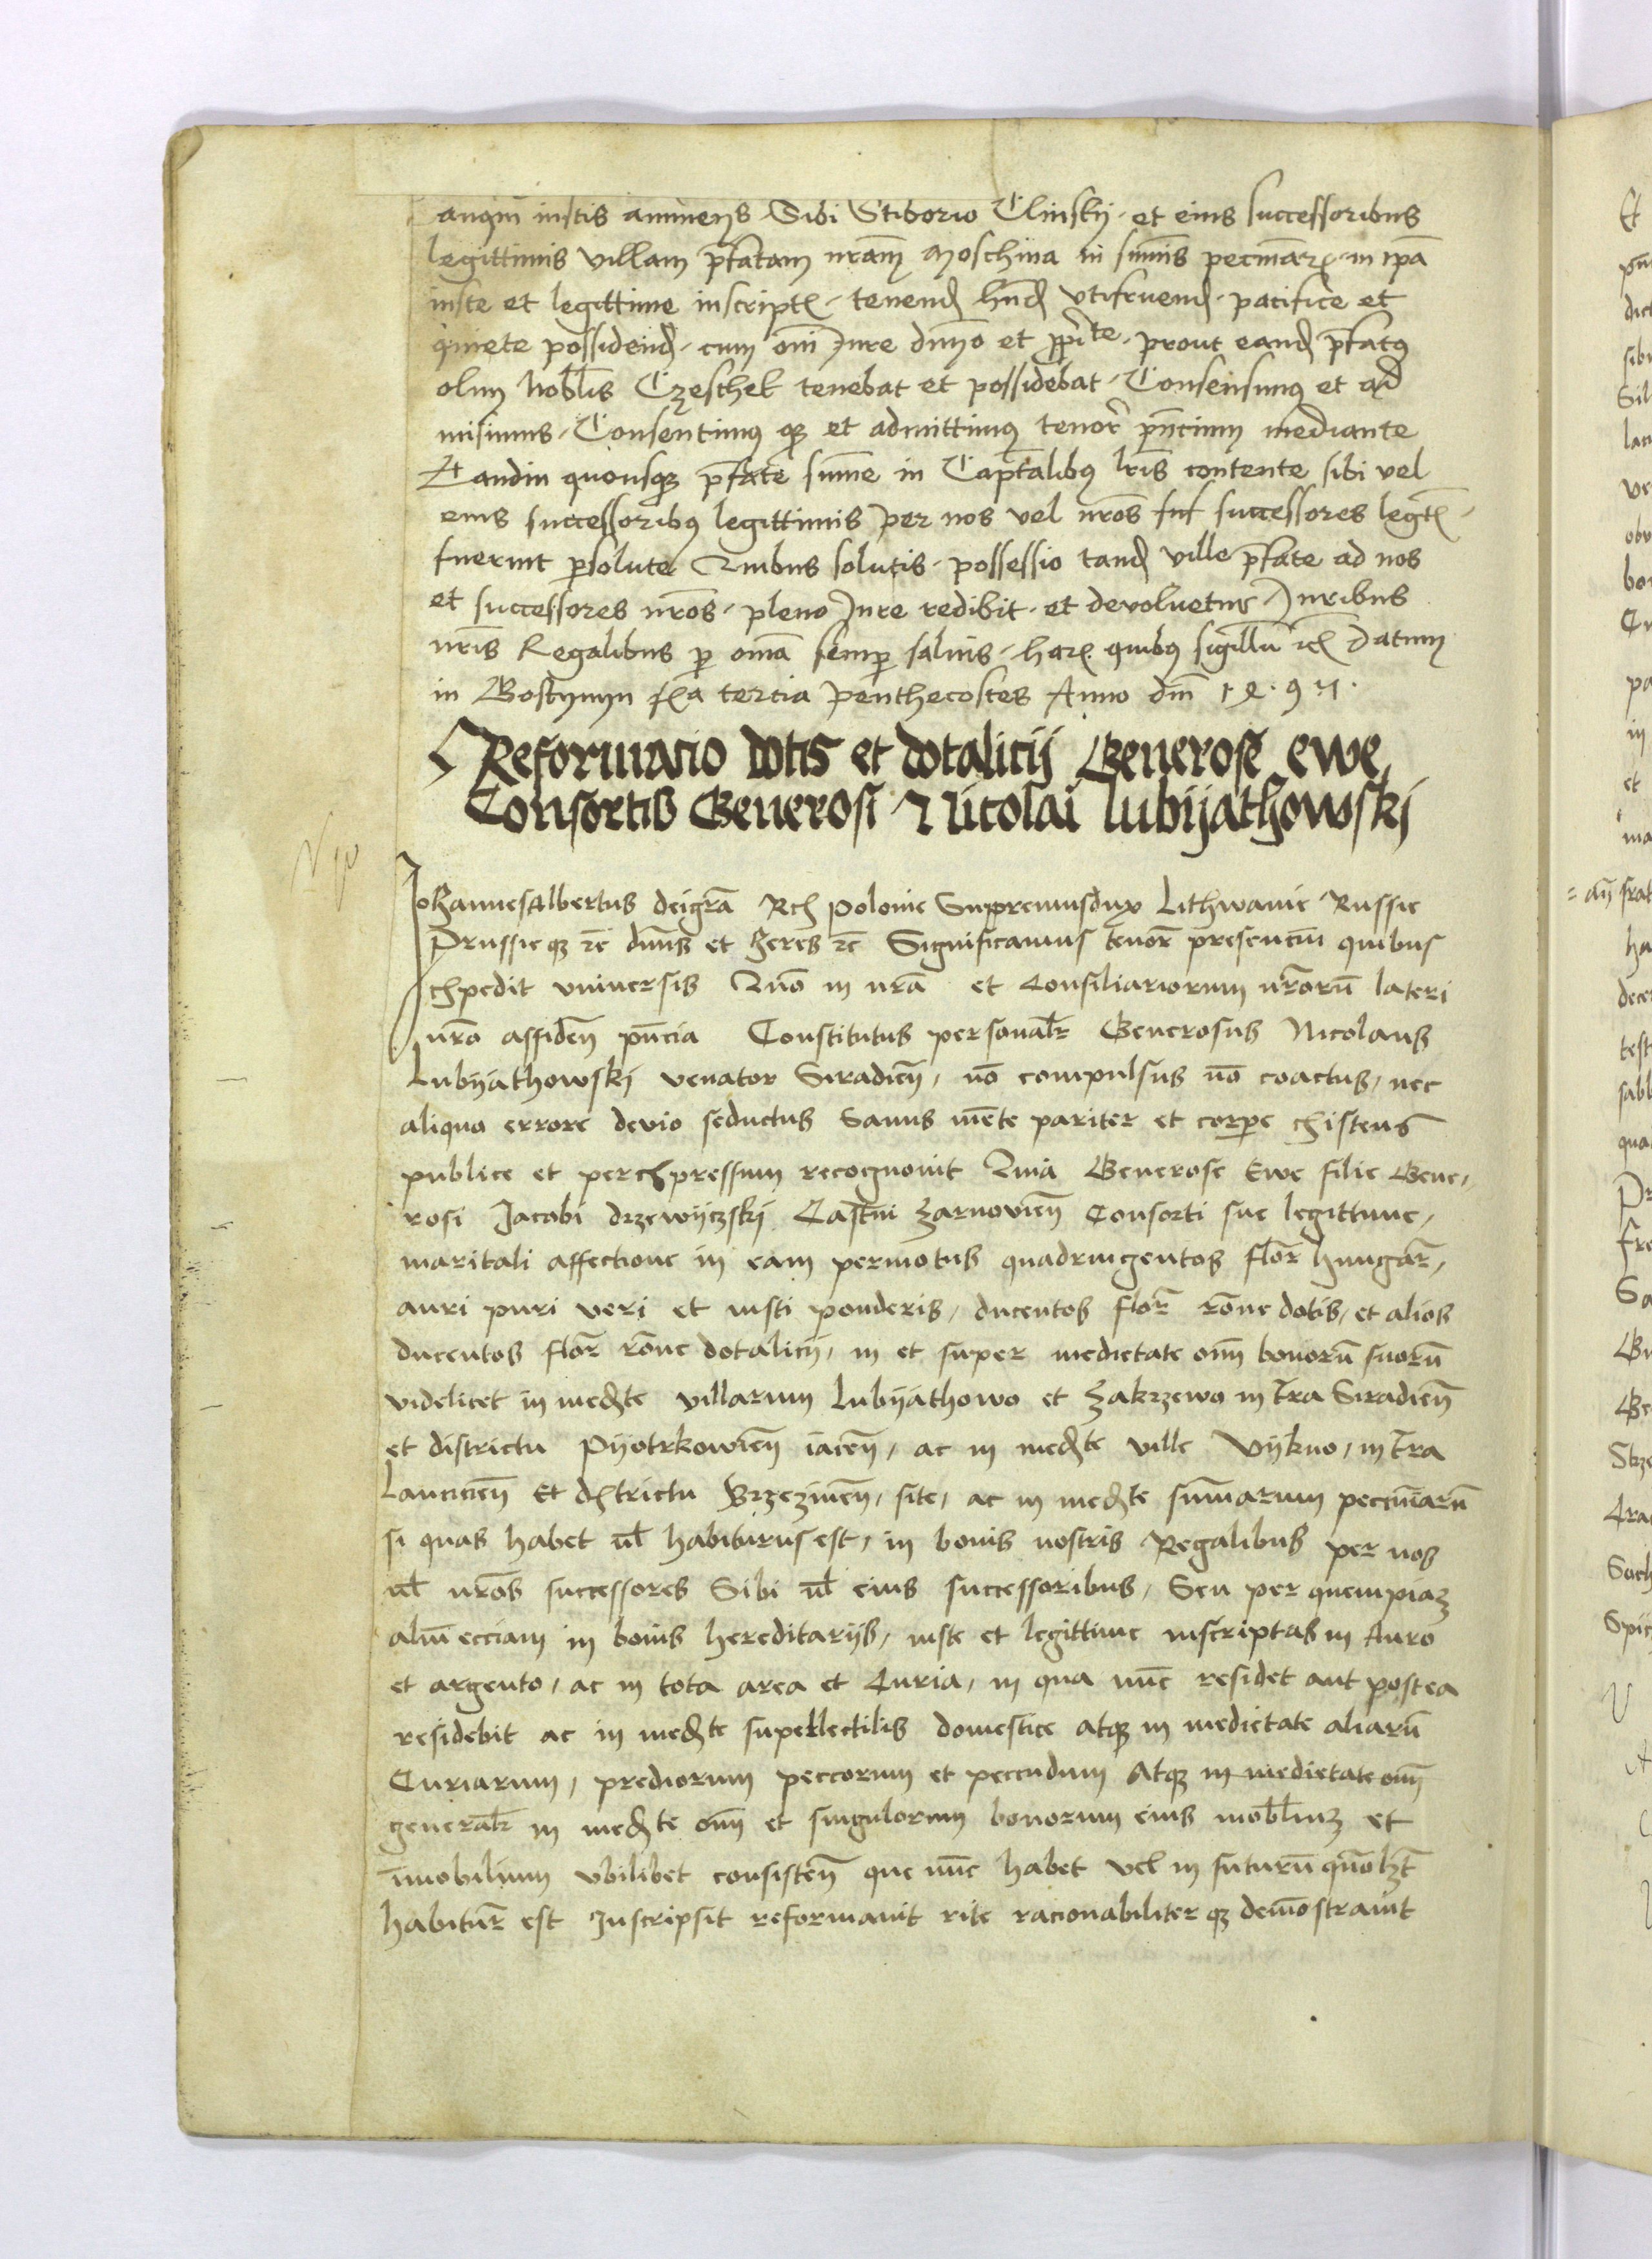 anqm̄ iustis annuen̄s Sibi Stiborio Clinskij et eius successoribus
legittimis villam p̄fatam nr̄am Moschina in sum̄is pecuniar̄ in ip̄a
iuste et legittime inscript̄ tenend̄ hn̄d̄ vtifruend̄ pacifice et
quiete possidend̄ cum om̄i Iure dn̄io et pp̄rite prout eand̄ p̄fatus
olim Nobl̄is Czeschek tenebat et possidebat Consensimus et ad
misimus Consentimus q; et admittimus tenor̄ pn̄cium mediante
Tandiu quousq; p̄fate sum̄e in Capt̄alibus lr̄is contente sibi vel
eius successoribus legittimis per nos vel nr̄os successores legt̄
fuerint p̄solute Quibus solutis possessio tand̄ ville p̄fate ad nos
et successores nr̄os pleno Iure redibit et devoluetur Iuribus
nr̄is Regalibus p̄ om̄a semp̄ saluis har̄ quibus sigillu̅ ic̄ Datum
in Bostijmijn fr̄a tercia Penthecostes Anno dm̄
Reformacio dotis et dotalicij Generose ewe
Consortis Generosi Nicolai lubijathowskj
Johannes Albertus deigra̅ Rex polonie Suppremusdux Lithwanie Russie
Prussieq; zc̄ dn̄us et heres zc̄ Significamus tenor̄ presenciu̅ quibus
expedit vniversis Quo̅ in nr̄a et Consiliariorum nr̄oru̅ lateri
nr̄o assiden̄ pn̄cia Constitutus personalr̄ Generosus Nicolaus
Lubijathowskj venator Siradien̄, no̅ compulsus no̅ coactus, nec
aliquo errore devio seductus Sanus me̅te pariter et corpe existens
publice et perexpressum recognouit Quia Generose Ewe filie Gene,
rosi Jacobi drzewijczskj Castn̄i Zarnovien̄ Consorti sue legittime,
maritali affectione in eam permotus quadringentos flor̄ hungar̄,
auri puri veri et iusti ponderis, ducentos flor̄ ro̅ne dotis, et alios
ducentos flor̄ ro̅ne dotalicij, in et super medietate om̄ bonoru̅ suoru̅
videlicet in med̄te villarum lubijathowo et Zakrzewo in tr̄a Siradien̄
et districtu Pijotrkowien̄ iacen̄, ac in med̄te ville Vijkno, in tr̄a
Lancicien̄ Et districtu Brzezinen̄, site, ac in med̄te sum̄arum peccuniaru̅
si quas habet ul̄ habiturus est, in bonis nostris Regalibus per nos
ul̄ nr̄os successores Sibi ul̄ eius successoribus, Seu per quempiaz
aliu̅ ecciam in bonis hereditarijs, iuste et legittime inscriptas in Auro
et argento, ac in tota area et Curia, in qua nu̅c residet aut postea
residebit ac in med̄te supellectilis domestice atq; in medietate aliaru̅
Curiarum, prediorum peccorum et peccudum Atq; in medietate om̄
generalr̄ in med̄te om̄ et singulorum bonorum eius mobl̄iuz et
i̅mobilium vbilibet consisten̄ que nu̅c habet vel in futuru̅ quo̅lzt
habitur̄ est Inscripsit reformauit rite racionabiliterq; demo̅strauit